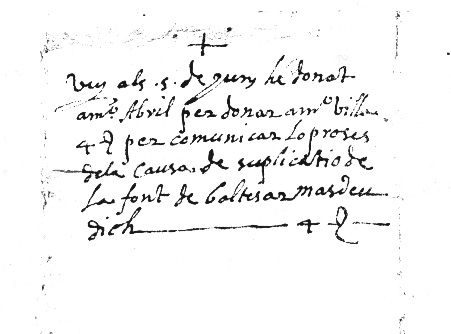 +
vuy als .5. de juny he donat
a mº Abril per donar a mº villa
4 ₰ per comunicar lo proses
dela causa de suplicatio de
la font de baltesar masdeu
dich 4 ₰